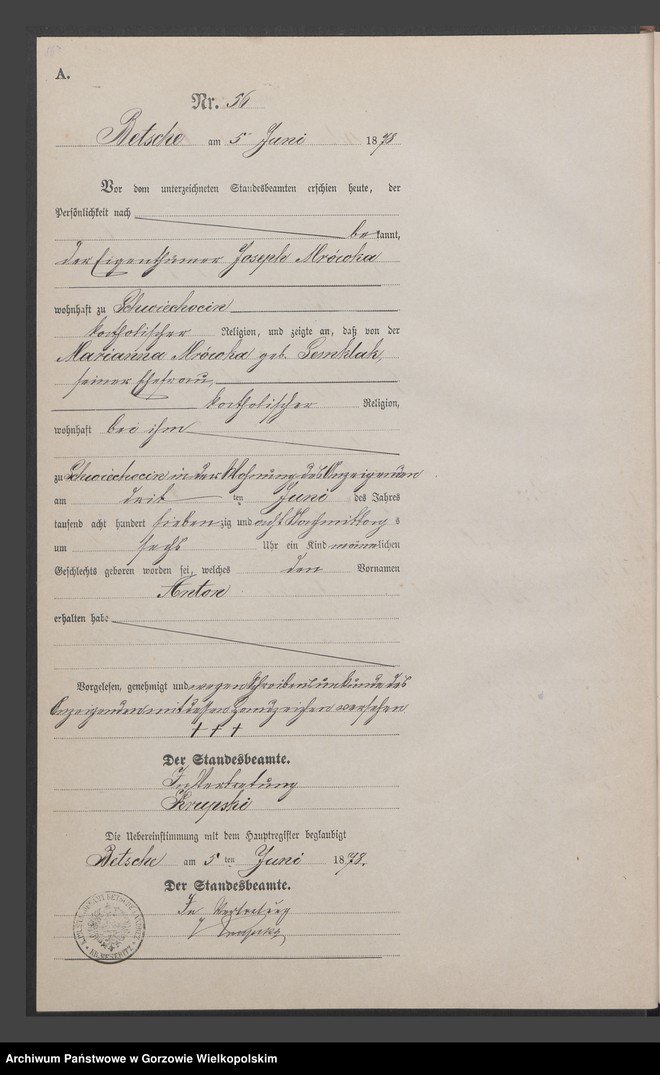 A.
Nr. 56
Betsche am 5 Juni 1878
Vor dem unterzeichneten Standesbeamten erschien heute, der
Persönlichkeit nach
bekannt,
der Eigenthümer Joseph Mrówka
wohnhaft zu Schwiechocin
katholischer Religion, und zeigte an, daß von der
Marianna Mrówka geb.
seiner Ehefrau,
katholischer Religion,
wohnhaft bei ihm
zu Schwiechocin in der Wohnung des Anzeigenden
am ten Juni des Jahres
tausend acht hundert siebenzig und acht Nachmittags
um sechs Uhr ein Kind männlichen
Geschlechts geboren worden sei, welches den Vornamen
Anton
erhalten habe
Vorgelesen, genehmigt und wegen Schreibensunkunde des
Anzeigenden mit dessen Handzeichen versehen
+ + +
Der Standesbeamte.
In Vertretung
Krupski
Die Uebereinstimmung mit dem Hauptregister beglaubigt
Betsche am 5 ten Juni 1878.
Der Standesbeamte.
In Vertretung
KR. MESERITZ
Archiwum Państwowe w Gorzowie Wielkopolskim